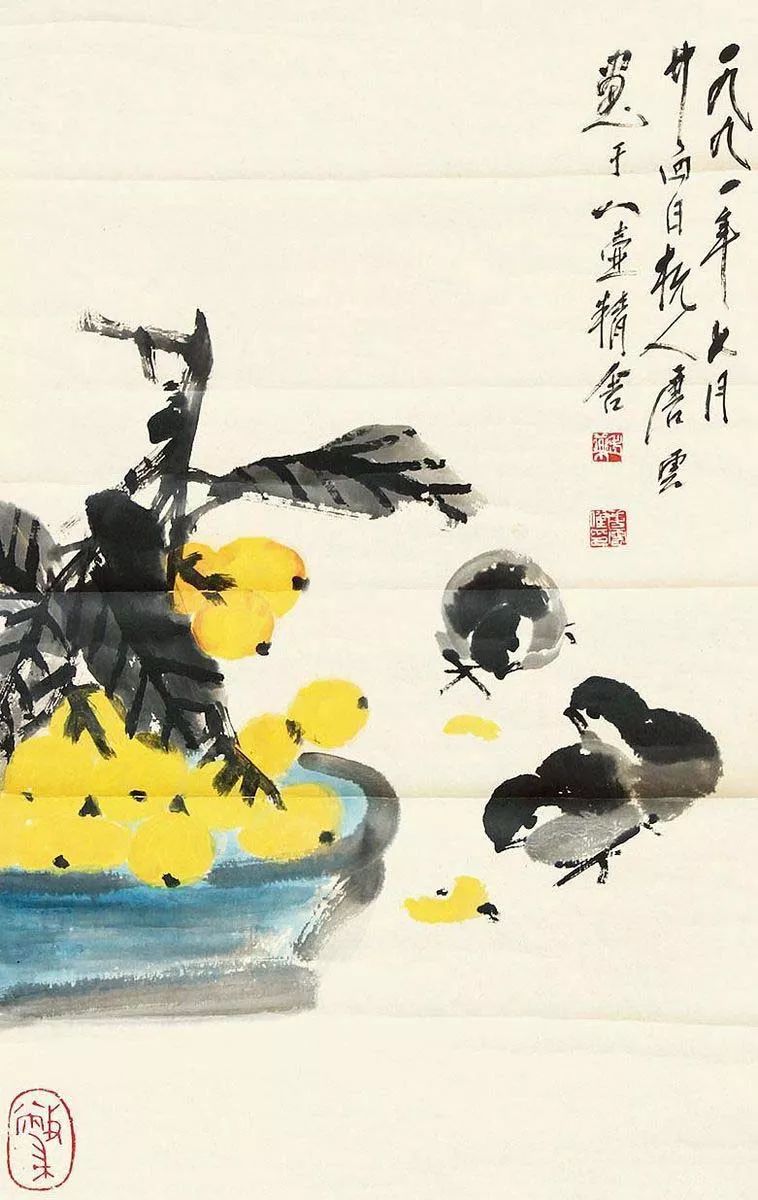 一九九一年七月
廿四日杭人唐雲
畫于八壺精舍